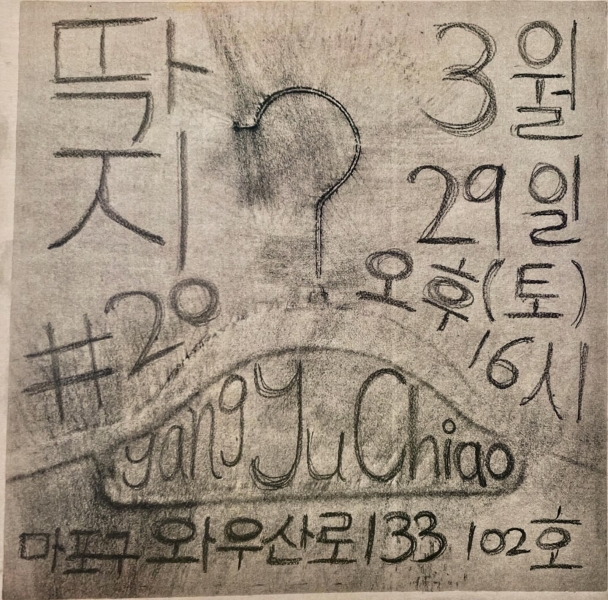 딱지
#20
3월
29일
오후(토)
16시
yang yu Chiao
마포구 와우산로133 102호